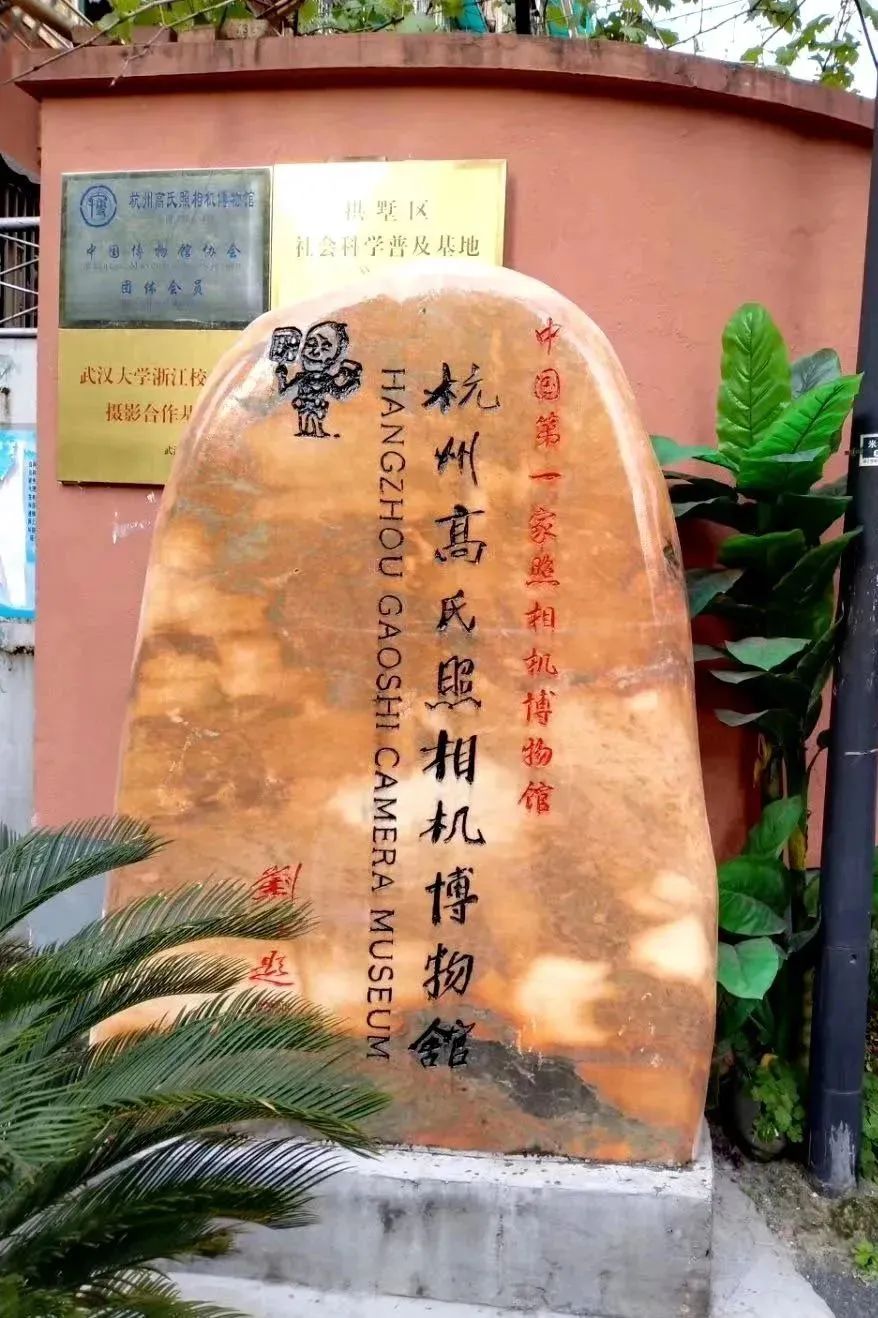 杭州高氏照相机博物馆
中国博物馆协会
团体会员
拱墅区
社会科学普及基地
武汉大学浙江校
摄影合作基
武
中国第一家照相机博物馆
杭州高氏照相机博物馆
HANGZHOU GAOSHI CAMERA MUSEUM
劉
题
米